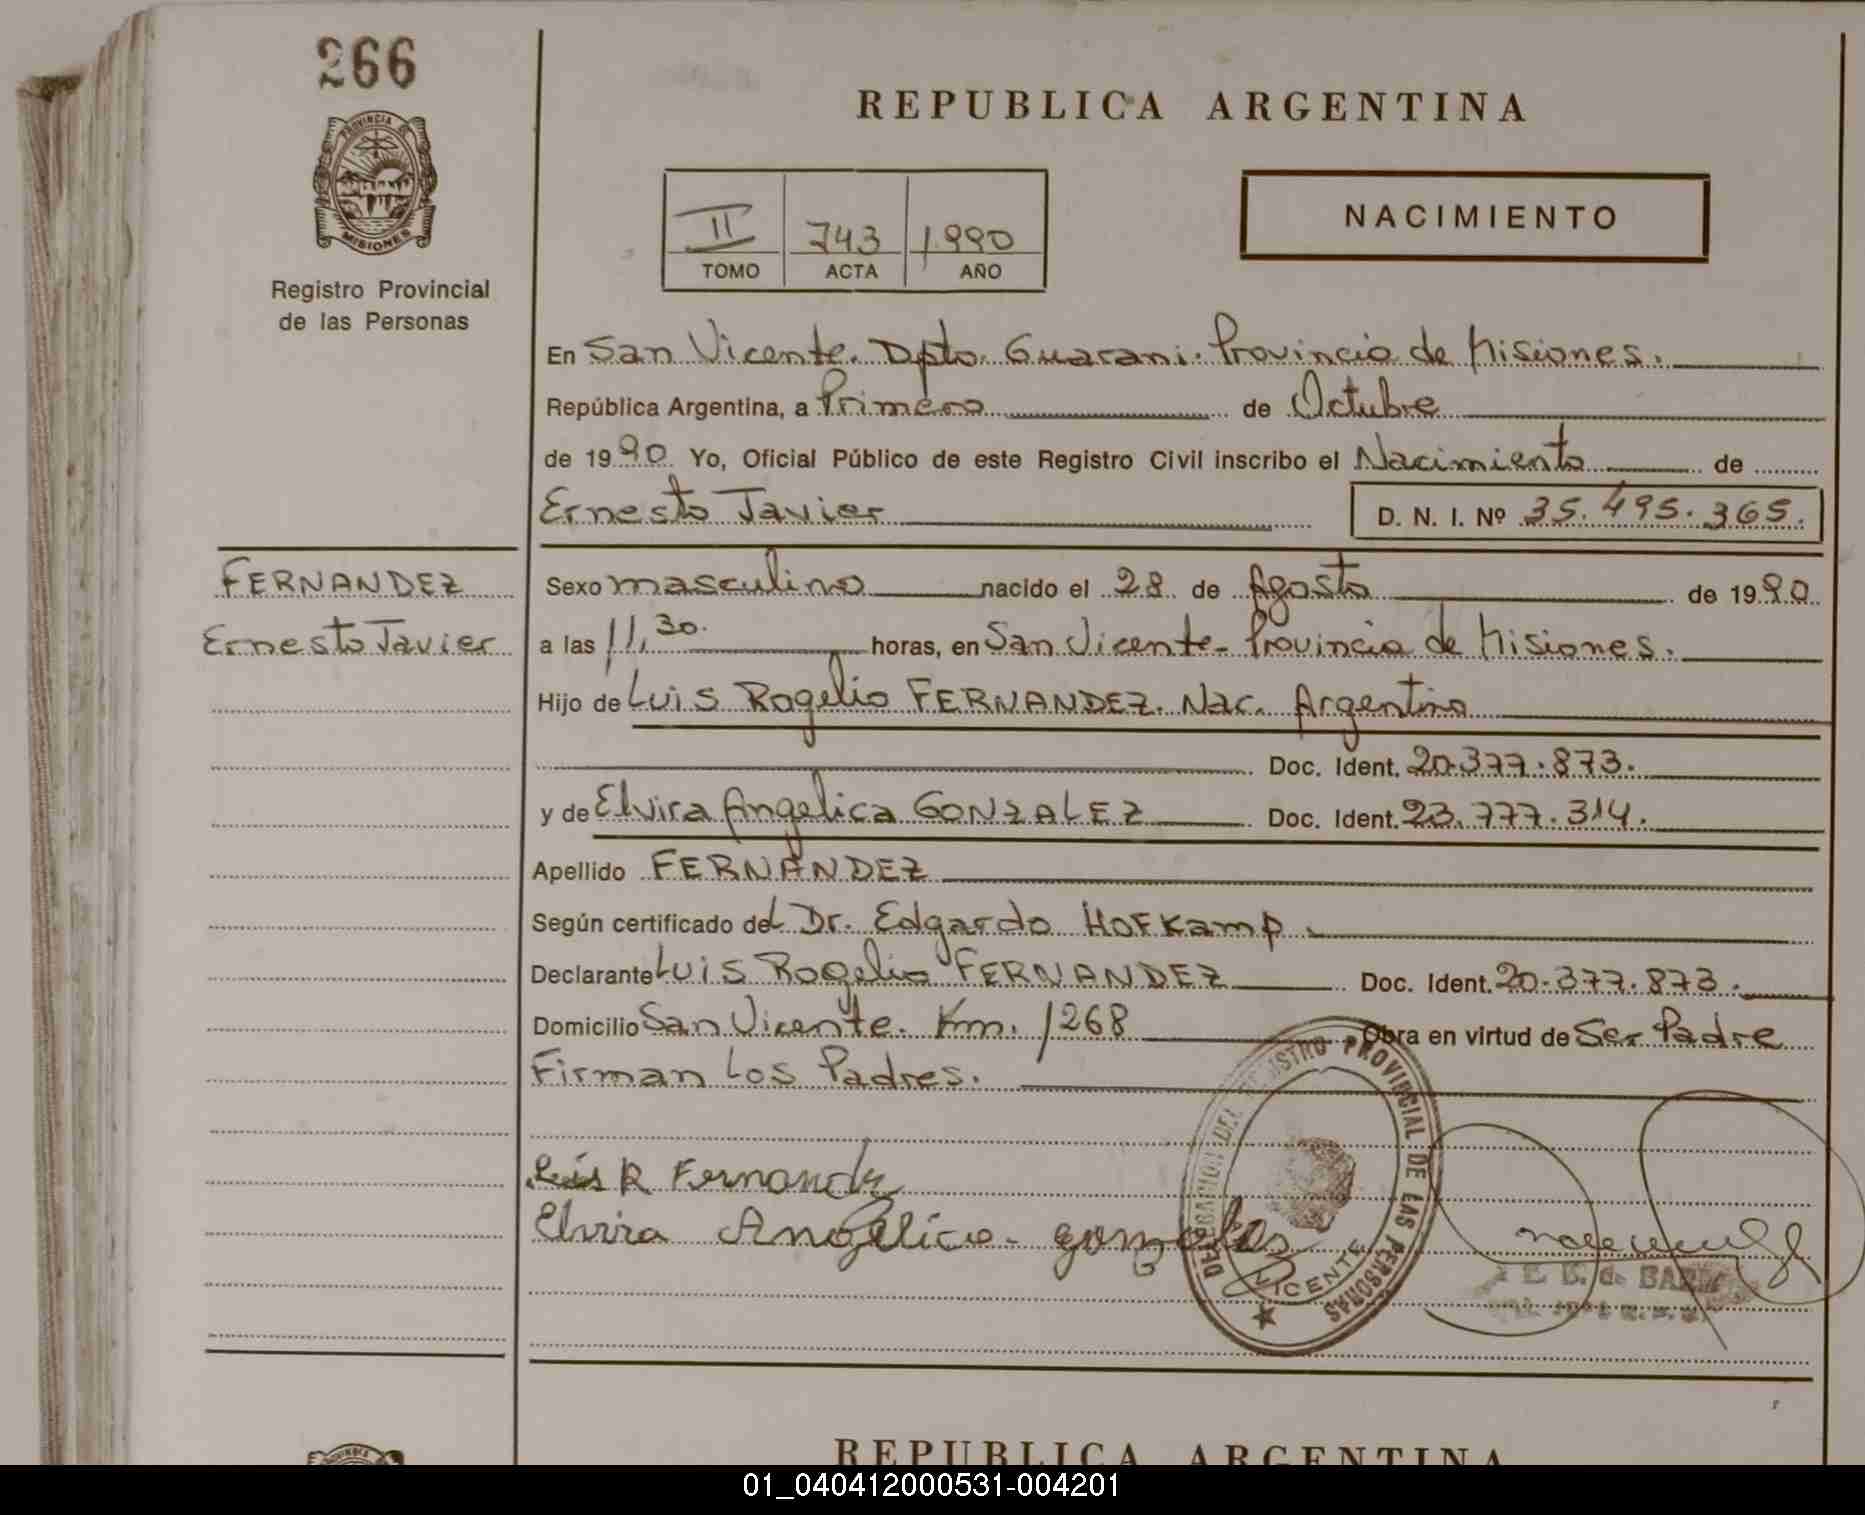 266
PROVINCIA DE
MISIONES
Registro Provincial
de las Personas
REPUBLICA ARGENTINA
II 743 1990
TOMO ACTA AÑO
NACIMIENTO
En San Vicente. Dpto. Guarani. Provincia de Misiones.
República Argentina, a Primero de Octubre
de 1990 Yo, Oficial Público de este Registro Civil inscribo el Nacimiento de
Ernesto Javier D. N. I. Nº 35.495.365.
FERNANDEZ
Ernesto Javier
Sexo masculino nacido el 28 de Agosto de 1990
a las 11,30. horas, en San Vicente - Provincia de Misiones.
Hijo de Luis Rogelio FERNANDEZ. Nac. Argentino
Doc. Ident. 20.377.873.
y de Elvira Angelica GONZALEZ Doc. Ident. 23.777.314.
Apellido FERNANDEZ
Según certificado del Dr. Edgardo HOFKamp.
Declarante Luis Rogelio FERNANDEZ Doc. Ident. 20.377.873.
Domicilio San Vicente. Km. 1268 Obra en virtud de Ser Padre
Firman Los Padres.
Luis R Fernandz
Elvira Angelica gonzales
DELEGACION DEL REGISTRO PROVINCIAL DE LAS PERSONAS
VICENTE
E. B. de
REPUBLICA ARGENTINA
01_040412000531-004201